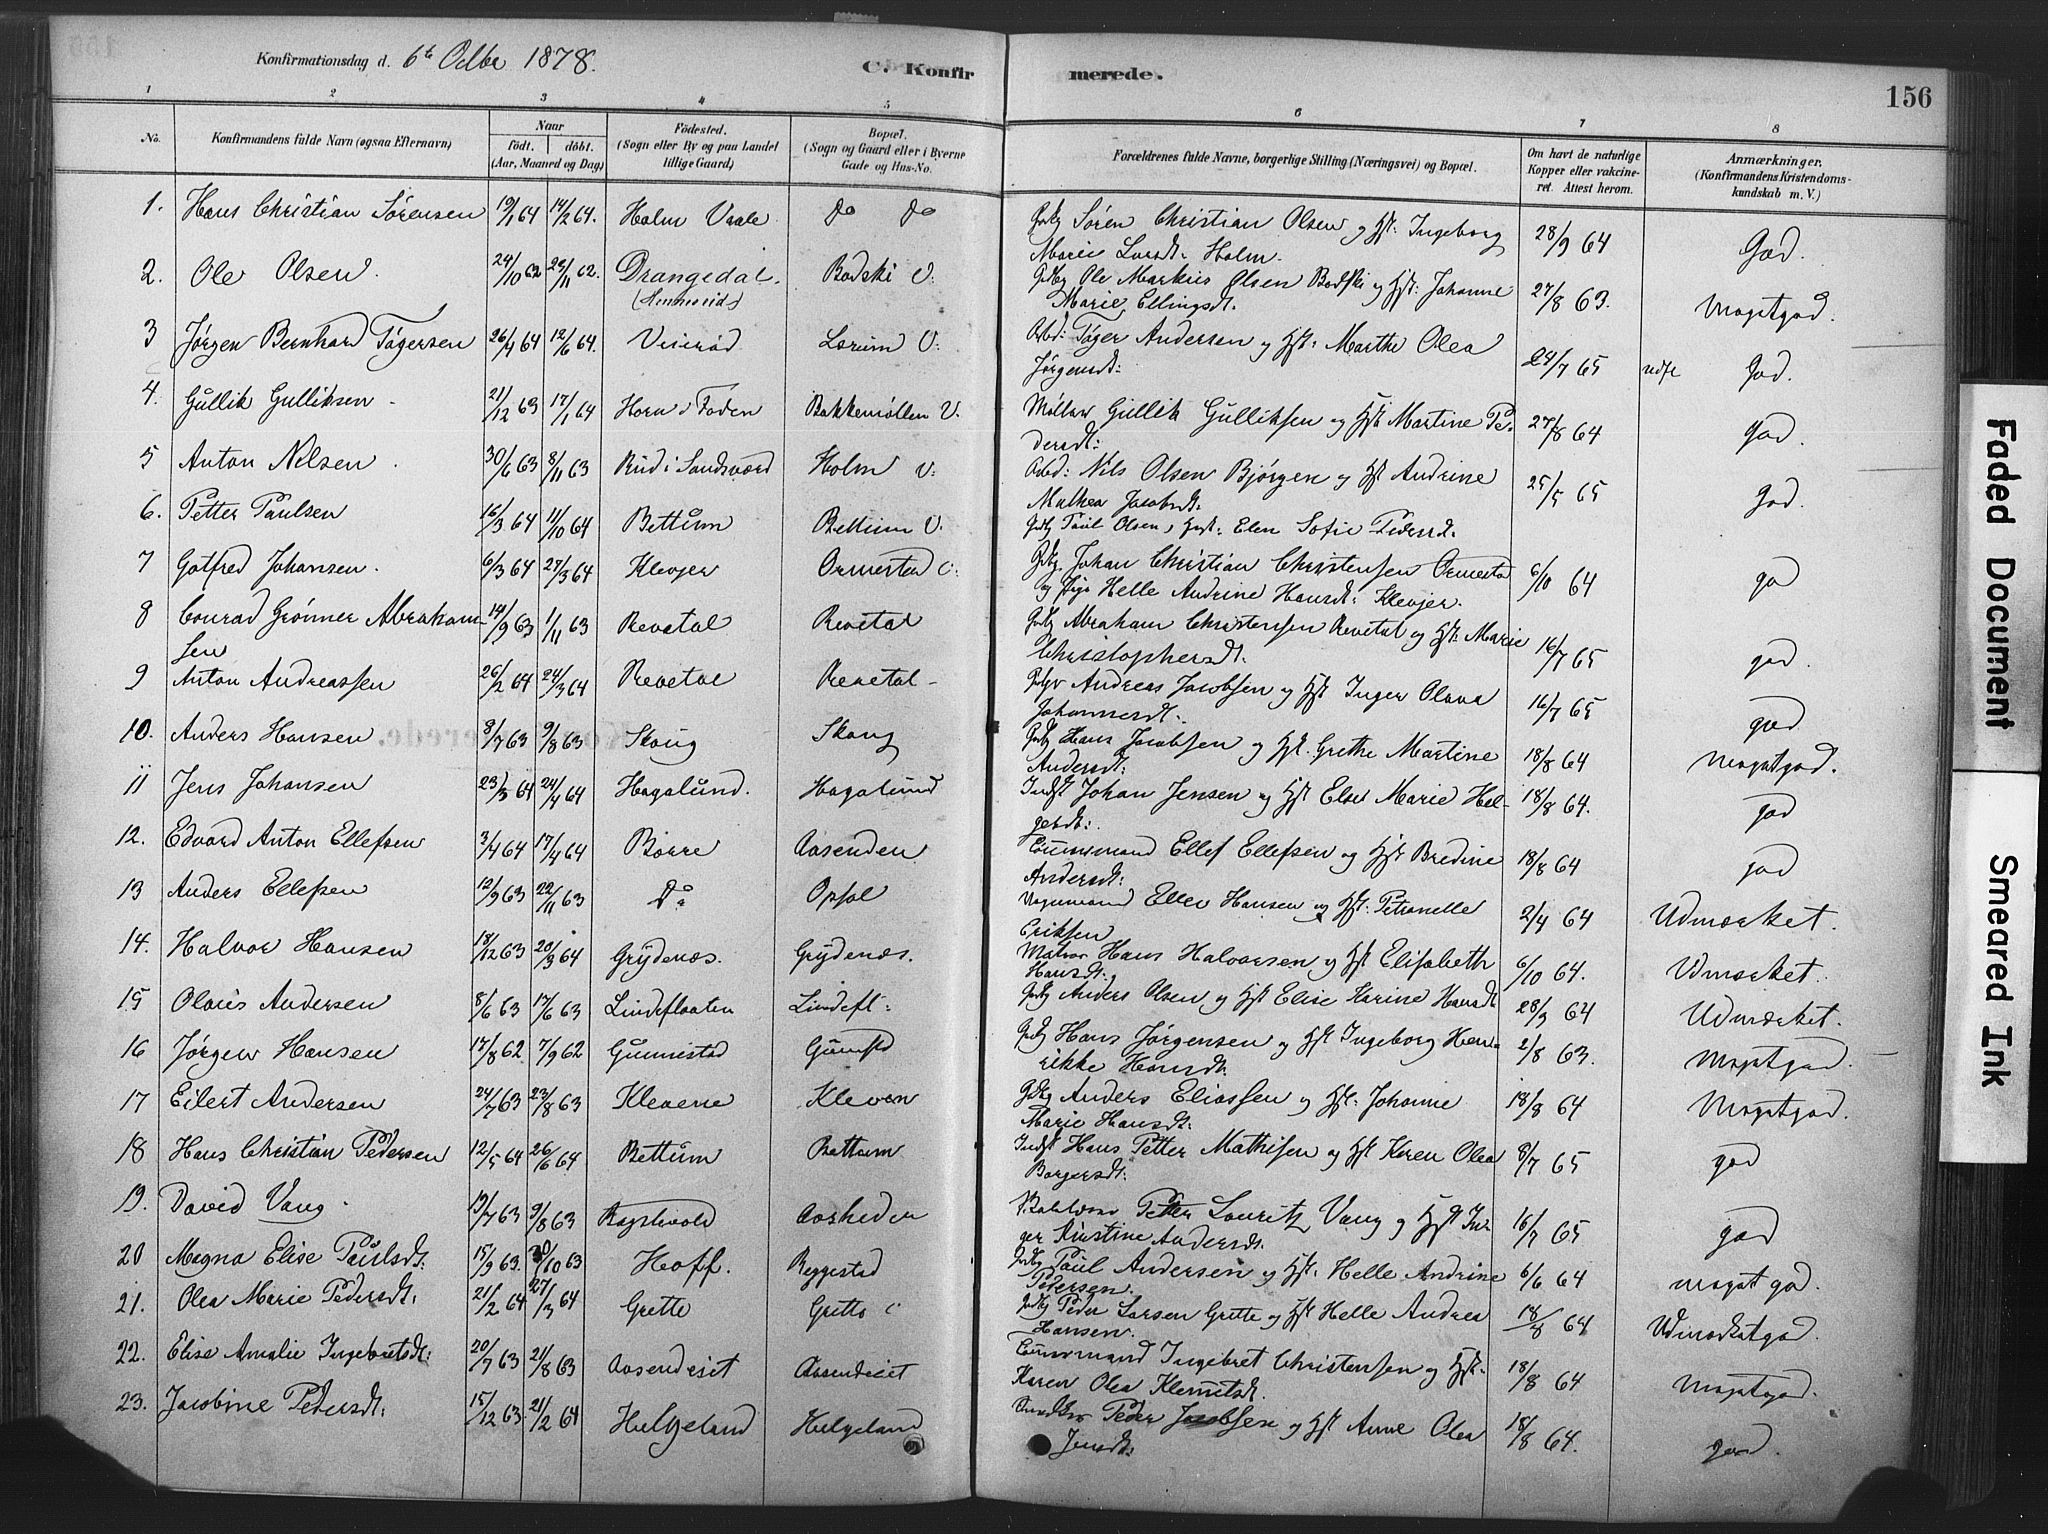 Konfirmationsdag d. 6te Octbr 1878.
C. Konfirmerede.
156
1 2 3 4 5 6 7 8
No. Konfirmandens fulde Navn (ogsaa Efternavn) Naar födt. döbt. (Aar, Maaned og Dag) Födested. (Sogn eller By og paa Landet tillige Gaard) Bopæl. (Sogn og Gaard eller i Byerne Gade og Hus-No. Forældrenes fulde Navne, borgerlige Stilling (Næringsvei) og Bopæl. Om havt de naturlige Kopper eller vakcineret. Attest herom. Anmærkninger. (Konfirmandens Kristendomskundskab m. V.)
1. Hans Christian Sørensen 19/1 64 14/2 64. Holm Vaale do do Gdbr Søren Christian Olsen og Hst: Ingeborg Marie Larsdt: Holm. 28/9 64 God.
2. Ole Olsen. 24/10 62 23/11 62. Drangedal. Bodski V: Gdbr Ole Markus Olsen Bodski og Hst: Johanne Marie Ellingsdt. 27/8 63. Megetgod.
3 Jørgen Bernhard Tøgersen 26/4 64 12/6 64. Vivestad Lorum V: Arbd: Tøger Andersen og Hst: Marthe Olea Jørgensdt: 24/7 65 God.
4. Gullik Gulliksen 21/12 63 17/1 64 Horn i Foden Bakkemøllen V. Møller Gullik Gulliksen og Hst Martine Pedersdt: 27/8 64 god.
5 Anton Nilsen 30/6 63 8/11 63 Rud i Sandsværd Holm V: Arbd: Nils Olsen Bjørgen og Hst Andrine Mathea Jacobsdt. 25/5 65 God.
6. Petter Paulsen 16/3 64 11/10 64 Bettum Bettum V. Gdbr Paul Olsen, Hust: Elen Sofie Pedersd:
7 Gotfred Johansen. 6/3 64 27/3 64 Klevjer Ormestad Gdbr. Johan Christian Christensen Ormestad og Pige Helle Andrine Hansdt: Klevjer. 6/10 64 god
8 Conrad Grønner Abrahamsen 14/9 63 1/11 63 Revetal Revetal Gdbr Abraham Christensen Revetal og Hst: Marie Christophersdt. 16/7 65 god.
9 Anton Andreassen 26/2 64 24/3 64 Revetal Revetal Gdbr Andreas Jacobsen og Hst Inger Olava Johannesdt: 16/7 65 god
10. Anders Hansen 8/7 63 9/8 63 Skoug Skoug Gdbr Hans Jacobsen og Hst. Grethe Martine Andersdt: 18/8 64 Megetgod.
11 Jens Johansen 23/3 64 24/4 64 Hagalund. Hagalund Indst Johan Jensen og Hst Else Marie Helgesdt: 18/8 64. god
12. Edvard Anton Ellefsen 3/4 64 17/4 64 Borre Aasenden Ellef Ellefsen og Hst Bredine Andersdt: 18/8 64 god
13 Anders Ellefsen 12/9 63 22/11 63 Do Opsal Ellev Hansen og Hst: Petronelle Eriksen 2/4 64 Udmærket.
14. Halvor Hansen 18/12 63 20/3 64 Grydenæs. Grydenæs. Matros Hans Halvorsen og Hst Elisabeth Hansdt: 6/10 64. Udmærket.
15 Olaus Andersen 8/6 63 17/6 63 Lindefloaten Lindefl: Gdbr Anders Olsen og Hst Elise Karine Hansdt 28/9 64 Udmærket.
16 Jørgen Hansen 17/8 62 7/9 62 Gunnestad Gunstd Gdbr Hans Jørgensen og Hst Ingeborg Henrikke Hansdt. 2/8 63. Megetgod.
17 Eilert Andersen 24/7 63 23/8 63 Klevene Kleven Gdbr Anders Eliassen og Hst: Johanne Marie Hansdt: 18/8 64 Megetgod.
18 Hans Christian Pedersen 12/5 64 26/6 64 Bettum Bettum Indst Hans Petter Mathisen og Hst Karen Olea Borgersdt: 8/7 65 god
19. David Vang. 19/7 63 9/8 63 Aasheden Petter Lauritz Vang og Hst Inger Kristine Andersdt. 16/7 65 god
20 Magna Elise Paulsdt: 15/9 63. 30/10 63 Hoff. Reggestad Gdbr Paul Andersen og Hst. Helle Andrine Pedersen. 6/6 64 meget god.
21. Olea Marie Pedersdt. 21/2 64 27/3 64 Grette Grette Gdbr Peder Larsen Grette og Hst Helle Andrea Hansen. 18/8 64 Udmærketgod.
22. Elise Amalie Ingebretsdt: 20/7 63 21/8 63 Aasendeiet Aasendeiet Ingebret Christensen og Hst. Karen Olea Klemetsdt. 18/8 64 Megetgod.
23. Jacobine Pedersdt: 15/12 63. 21/2 64 Helgeland Helgeland Peder Jacobsen og Hst Anne Olea Jensdt: 18/8 64. good.
Faded Document
Smeared Ink